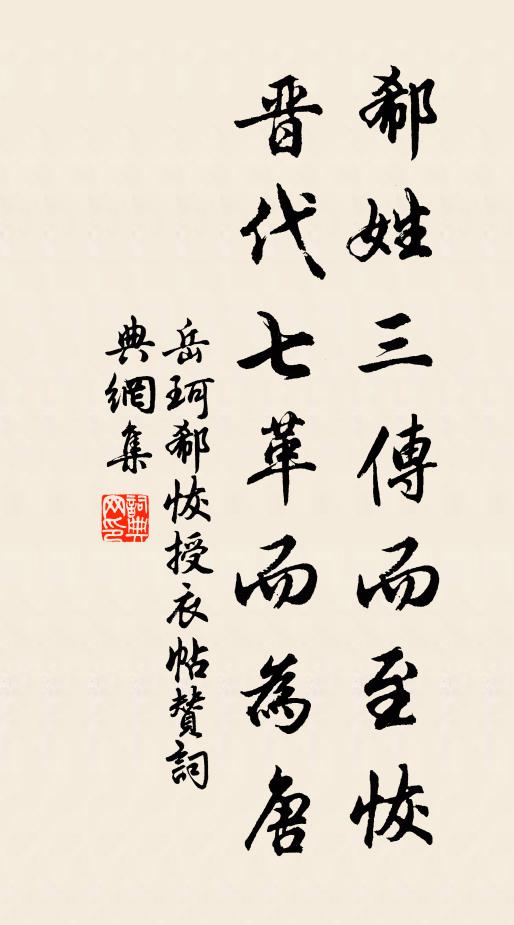 郗姓三傳而至恢
晋代七革而為唐
岳珂郗恢授衣帖贊詞
典網集
詞典網印